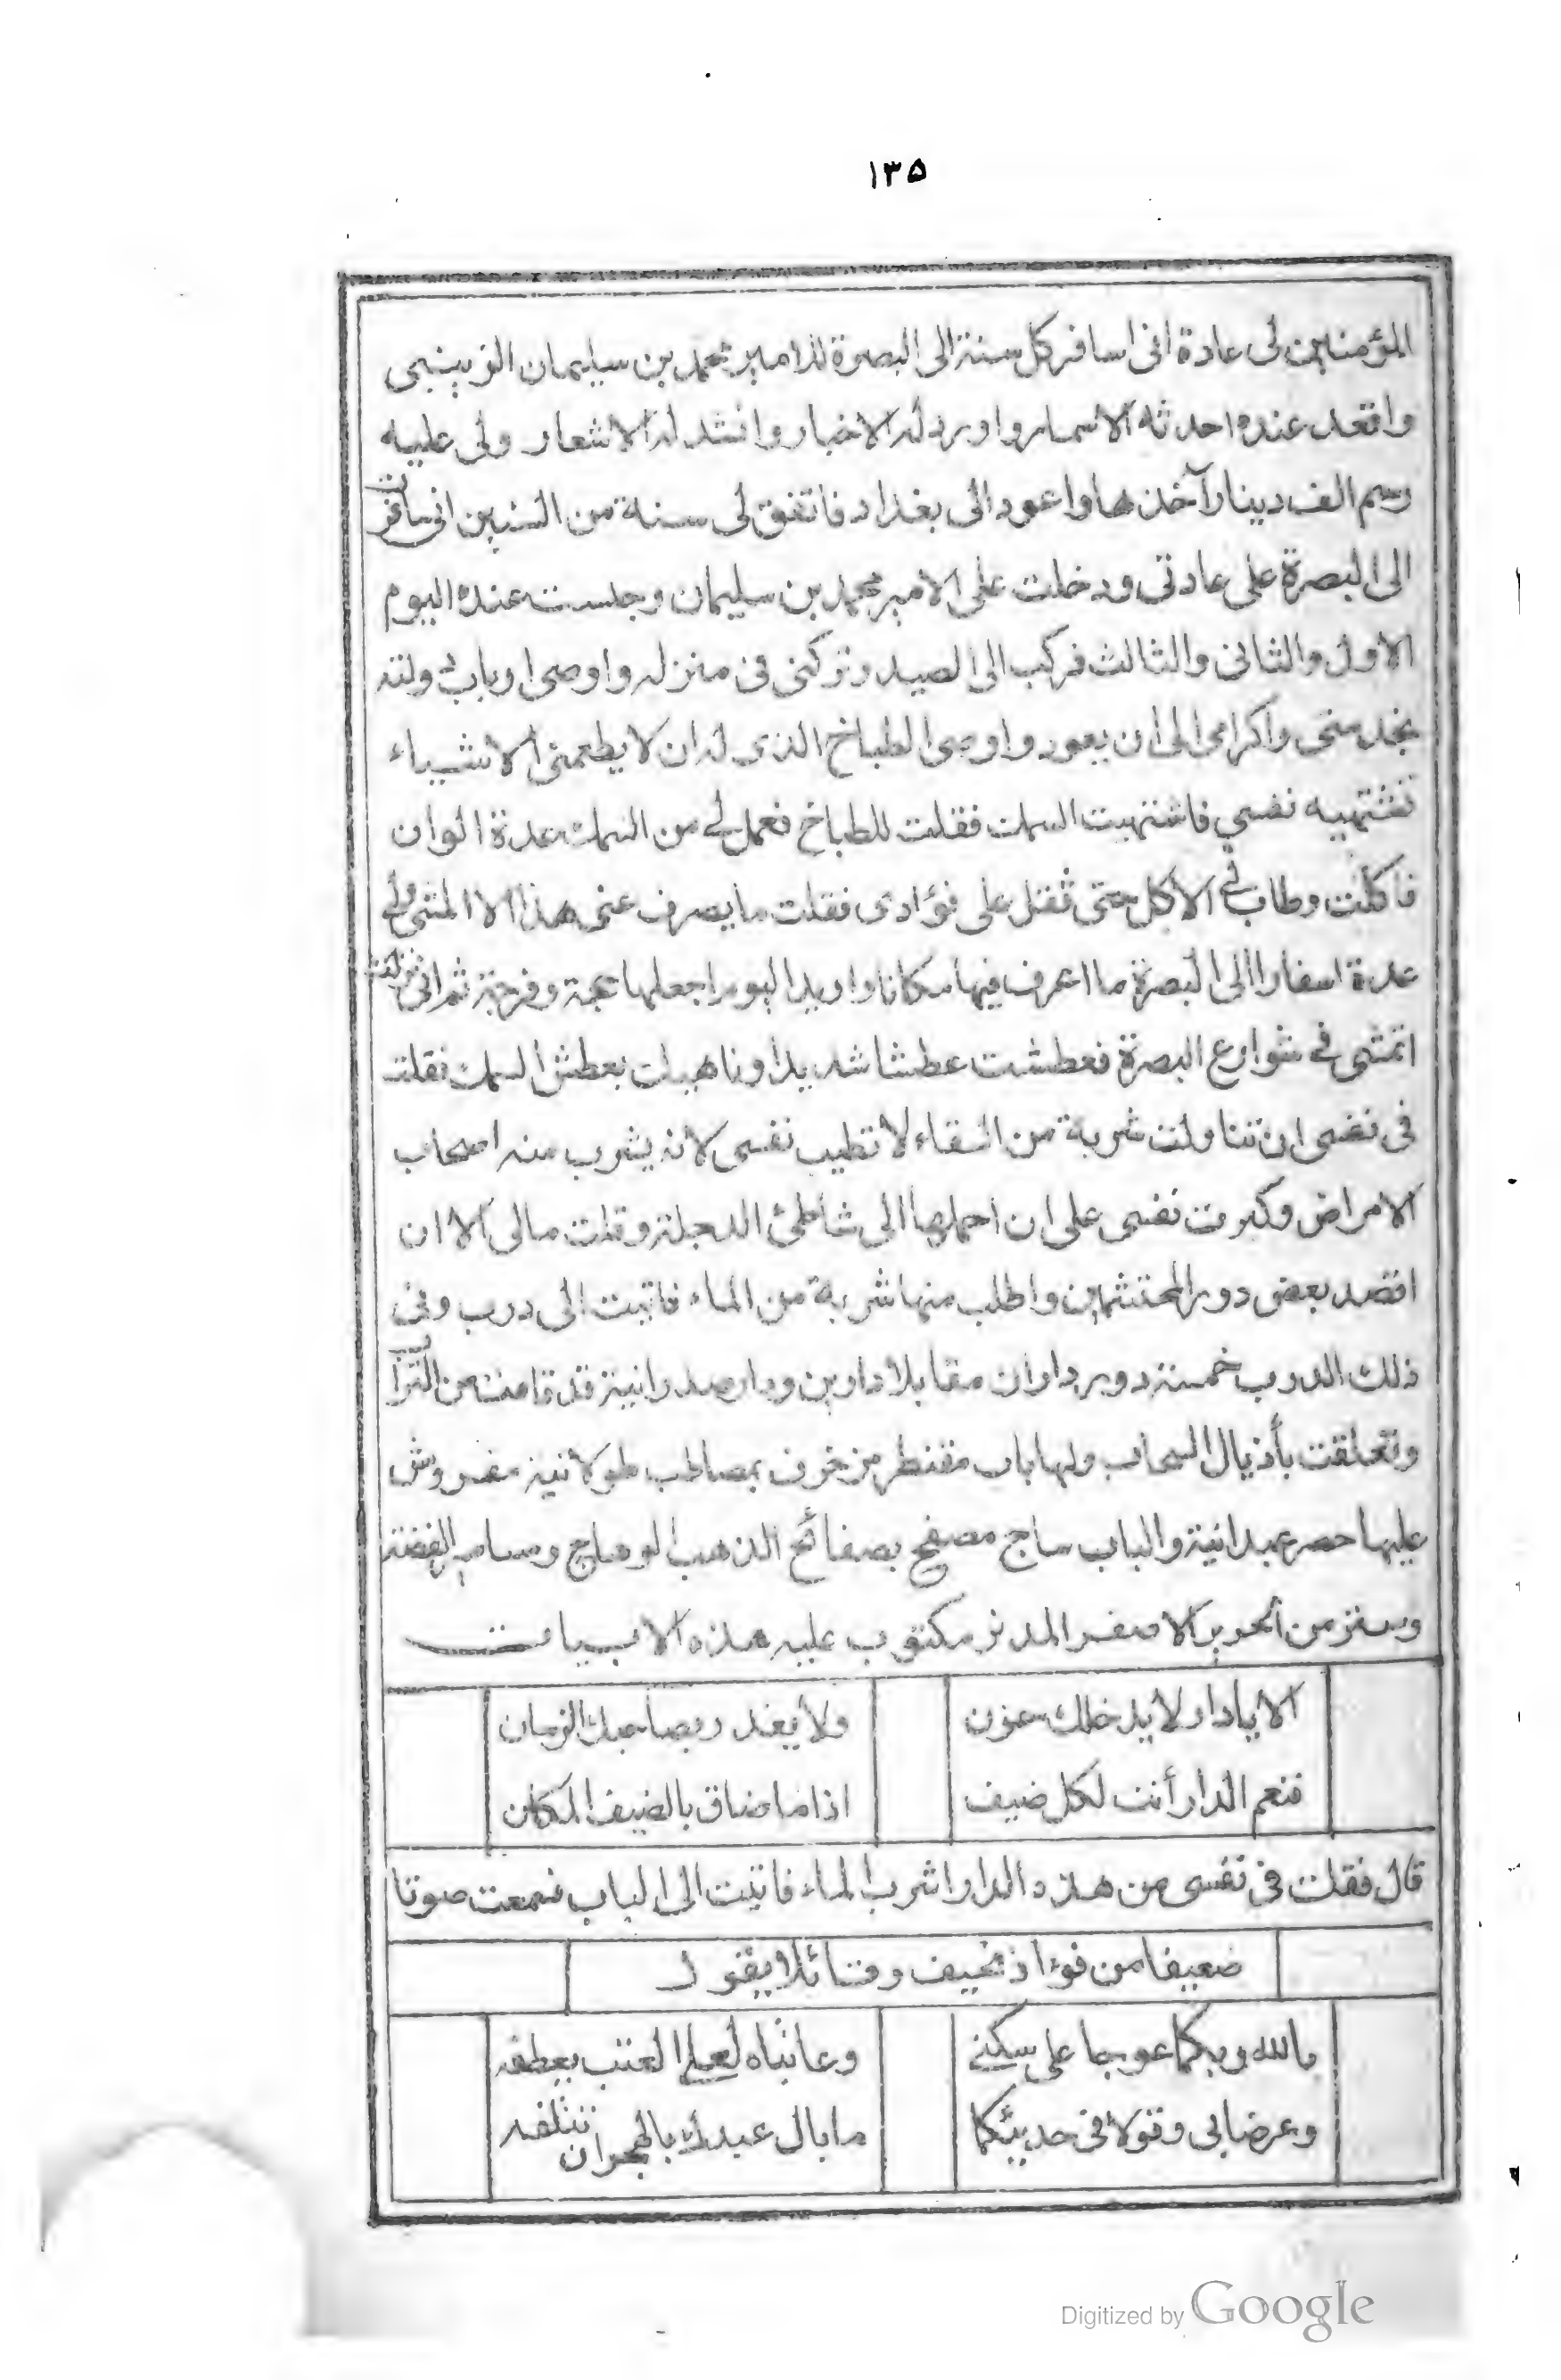 ١٣٥
المؤمنين لى عادة انى اسافر كل سنة الى البصرة للامير محمد بن سليمان الزينبى
واقعد عنده احدثه الاسمار واورد له الاخبار وانشد له الاشعار ولى عليه
رسم الف دينار آخذها واعود الى بغداد فاتفق لى سنة من السنين انى سافرت
الى البصرة على عادتى ودخلت على الامير محمد بن سليمان وجلست عنده اليوم
الاول والثانى والثالث فركب الى الصيد وتركنى فى منزله واوصى ارباب دولته
بخدمتى واكرامى الى ان يعود واوصى الطباخ الذى له ان لا يطعمنى الا شيياء
تشتهيه نفسي فاشتهيت السمك فقلت للطباخ فعمل لے من السمك عدة الوان
فاكلت وطاب لے الاكل حتى ثقل على فؤادى فقلت ما يصرف عنى هذا الا المشى ولے
عدة اسفارا الى البصرة ما اعرف فيها مكانا واريد اليوم اجعلها حجة وفرجة ثم انى نزلت
اتمشى فے شوارع البصرة فعطشت عطشا شديدا وناهيك بعطش السمك فقلت
فى نفسى ان تناولت شربة من السقاء لا تطيب نفسى لانه يشرب منه اصحاب
الامراض وكبرت نفسى على ان احملها الى شاطئ الدجلة وقلت مالى الا ان
اقصد بعض دور المحتشمين واطلب منها شربة من الماء فاتيت الى درب وفى
ذلك الدرب خمسة دور داران مقابلا دارين ودار صدرانية قد قامت من التراب
وتعلقت بأذيال السحاب ولها باب مقنطر مزخرف بمصاطب طولانية مفروش
عليها حصر عبدانية والباب ساج مصفح بصفائح الذهب الوهاج ومسامير الفضة
وستر من الحرير الاصفر المدنر مكتوب عليه هذه الابيات
الا يا دار لا يدخلك حزن ولا يغدر بصاحبك الزمان
فنعم الدار أنت لكل ضيف اذا ما ضاق بالضيف المكان
قال فقلت فى نفسى من هذه الدار اشرب الماء فاتيت الى الباب فسمعت صوتا
ضعيفا من فؤاد نحيف وقائلا يقول
بالله ربكما عوجا على سكنے وعاتباه لعل العتب يعطفه
وعرضا بى وقولا فى حديثكما ما بال عبدك بالهجران تتلفه
Digitized by Google